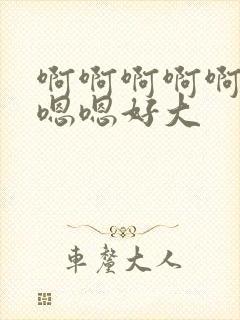 啊啊啊啊啊
嗯嗯好大
車釐大人